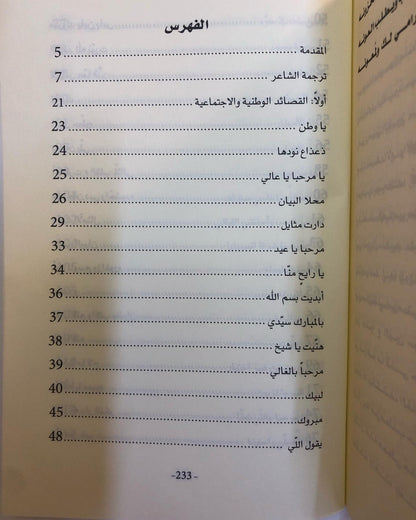 الفهرس
المقدمة ........ 5
ترجمة الشاعر ........ 7
أولاً: القصائد الوطنية والاجتماعية ........ 21
يا وطن ........ 23
ذعذاع نودها ........ 24
يا مرحبا يا عالي ........ 25
محلا البيان ........ 26
دارت مثايل ........ 29
مرحبا يا عيد ........ 33
يا رايحٍ منّا ........ 34
أبديت بسم الله ........ 36
بالمبارك سيّدي ........ 37
هنّيت يا شيخ ........ 38
مرحباً بالغالي ........ 39
لبيك ........ 40
مبروك ........ 45
يقول اللّي ........ 48
-233-